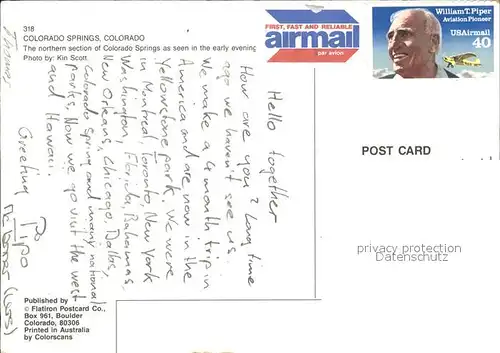 318
COLORADO SPRINGS, COLORADO
The northern section of Colorado Springs as seen in the early evening
Photo by: Kin Scott
FIRST, FAST AND RELIABLE
airmail
par avion
William T. Piper
Aviation Pioneer
USAirmail
40
POST CARD
Hello together
How are you? Long time
ago we haven't see us.
We make a 4 month trip in
America and are now in the
Yellowstone park. We were
in Montreal, Toronto, New York
Washington, Florida, Bahamas,
New Orleans, Chicago, Dallas,
Colorado Spring and many national
parks. Now we go visit the west
and Hawaii.
Greeting
Pipo
privacy protection
Datenschutz
Published by
© Flatiron Postcard Co.,
Box 961, Boulder
Colorado, 80306
Printed in Australia
by Colorscans